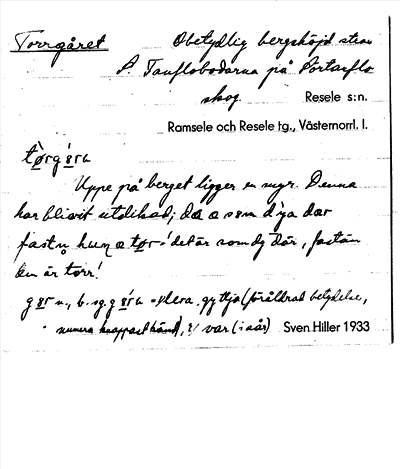 Torrgåret Obetydlig bergshöjd utan
S. Tanflobodarna på Portanflo
skog Resele s:n.
Ramsele och Resele tg., Västernorrl. l.
tòrgǿra
Uppe på berget ligger en myr. Denna
har blivit utdikad; da a sem dya dar
fastn hun a tør. 'det är som dy där, fastän
den är torr.'
gør n., b. sg. gǿra = Lera, gyttja (föråldrad betydelse,
numera knappast känd), 2/ var (i sår) Sven Hiller 1933